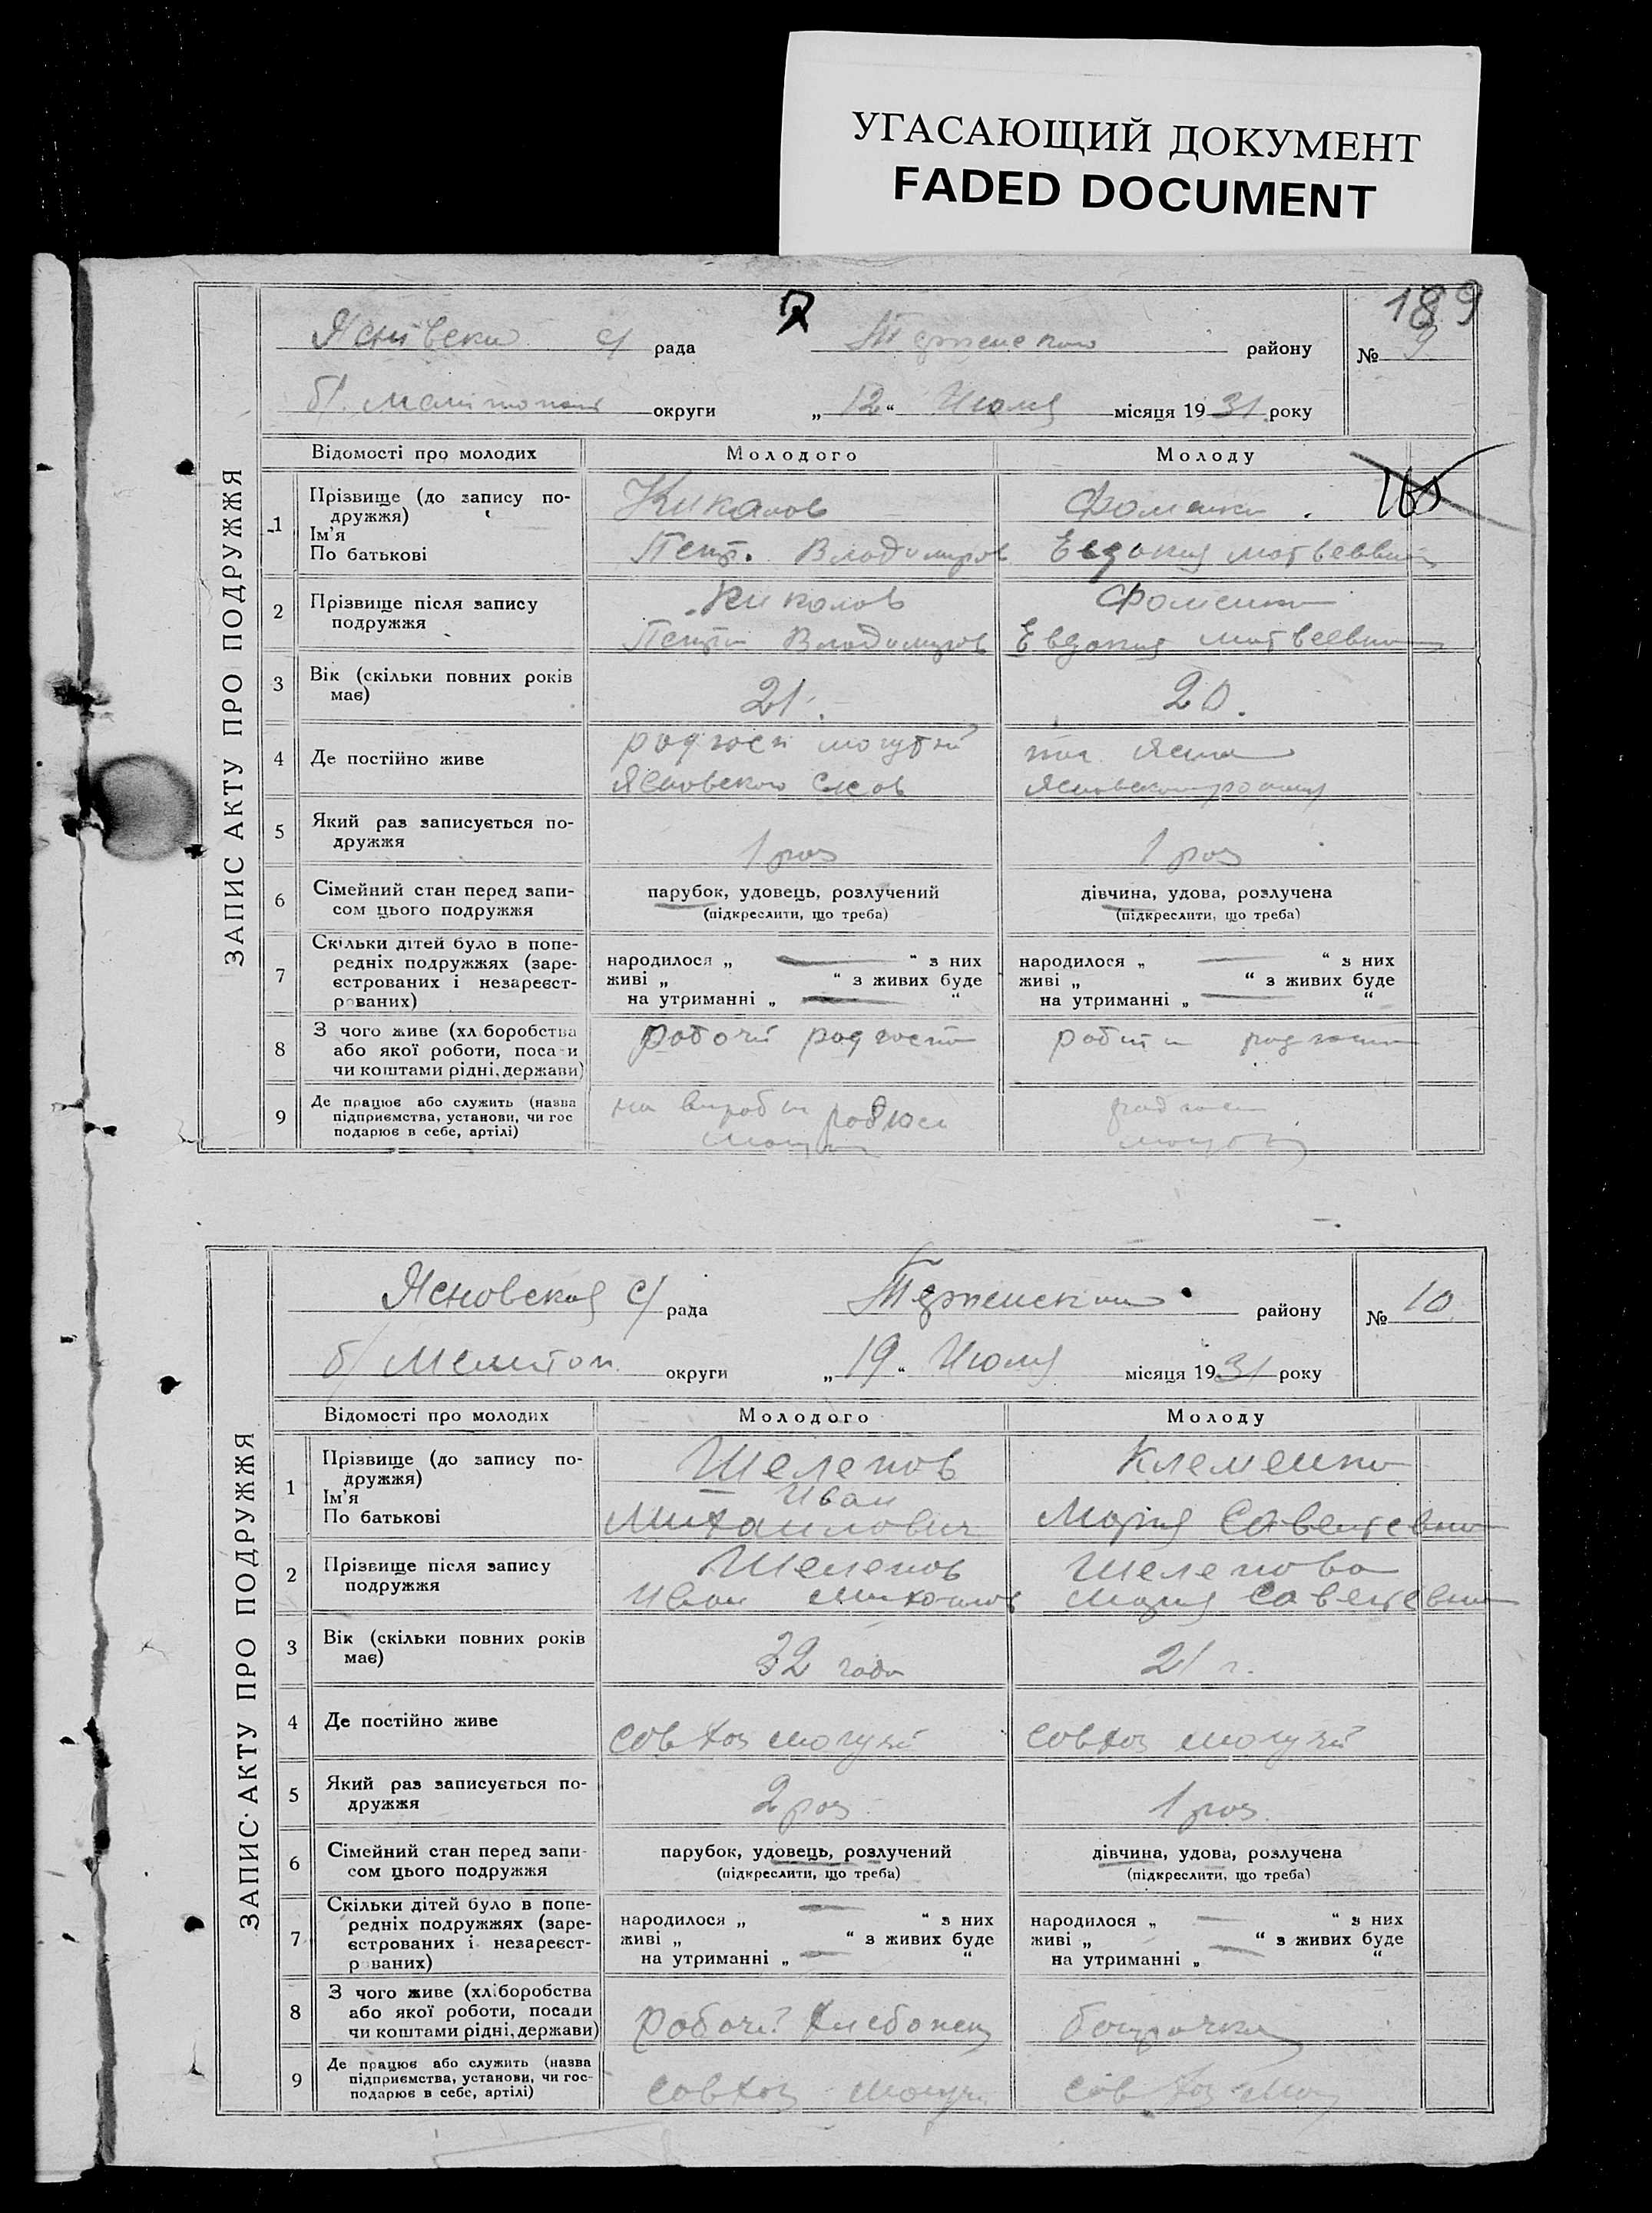 УГАСАЮЩИЙ ДОКУМЕНТ
FADED DOCUMENT
189
ЗАПИС АКТУ ПРО ПОДРУЖЖЯ
с/ рада района району № 9
округи „12“ Июля місяця 1931 року
Відомості про молодих Молодого Молоду
1 Прізвище (до запису подружжя)
Ім'я
По батькові
Кикалов Фоменко
Петр. Владимиров Евдокия Матвеевна
2 Прізвище після запису подружжя
Кикалов Фоменко
Петр Владимиров Евдокия Матвеевна
3 Вік (скільки повних років має) 21. 20.
4 Де постійно живе
радгосп могутній
Ясновского
5 Який раз записується подружжя 1 раз 1 раз
6 Сімейний стан перед записом цього подружжя
парубок, удовець, розлучений дівчина, удова, розлучена
(підкреслити, що треба) (підкреслити, що треба)
7 Скільки дітей було в попередніх подружжях (зареєстрованих і незареєстрованих)
народилося „ — “ з них народилося „ — “ з них
живі „ “ з живих буде живі „ “ з живих буде
на утриманні „ — “ на утриманні „ — “
8 З чого живе (хліборобства або якої роботи, посади чи коштами рідні, держави)
робочий радгоспа
9 Де працює або служить (назва підприємства, установи, чи гос подарює в себе, артілі)
ЗАПИС АКТУ ПРО ПОДРУЖЖЯ
Ясновская с/ рада району № 10
б/ Мелитоп. округи „19“ Июля місяця 1931 року
Відомості про молодих Молодого Молоду
1 Прізвище (до запису подружжя)
Ім'я
По батькові
Шелепов Клеменко
Иван
Михаилович Мария Савельевна
2 Прізвище після запису подружжя
Шелепов Шелепова
Иван Михаилов Мария Савельевна
3 Вік (скільки повних років має) 32 года 21 г.
4 Де постійно живе
совхоз могучий совхоз могучий
5 Який раз записується подружжя 2 раз 1 раз
6 Сімейний стан перед записом цього подружжя
парубок, удовець, розлучений дівчина, удова, розлучена
(підкреслити, що треба) (підкреслити, що треба)
7 Скільки дітей було в попередніх подружжях (зареєстрованих і незареєстрованих)
народилося „ — “ з них народилося „ — “ з них
живі „ “ з живих буде живі „ — “ з живих буде
на утриманні „ — “ на утриманні „ “
8 З чого живе (хліборобства або якої роботи, посади чи коштами рідні, держави)
робочий
9 Де працює або служить (назва підприємства, установи, чи господарює в себе, артілі)
совхоз совхоз